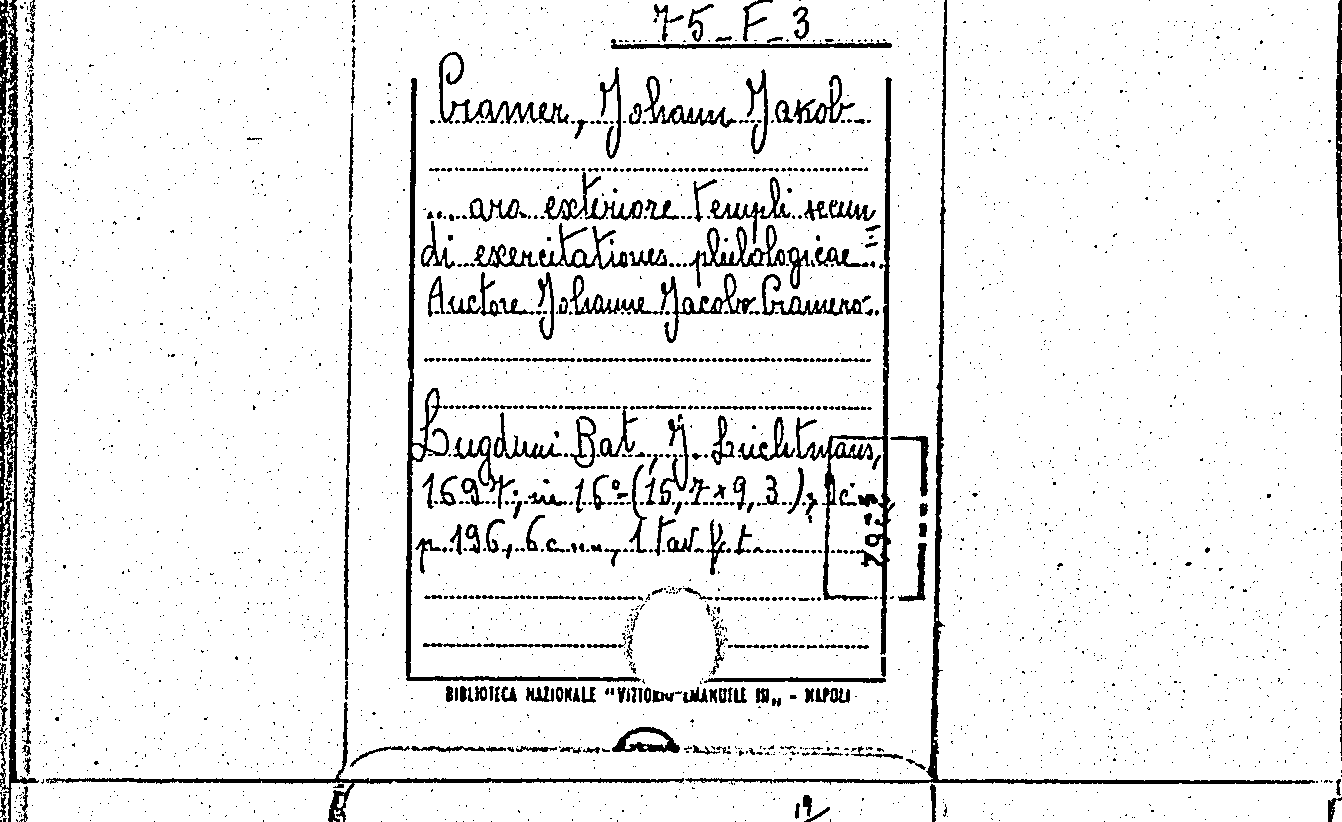 75_F_3
Cramer, Johann Jakob
... ara exteriore Templi secun=
di exercitationes philologicae..
Auctore Johanne Jacobo Cramero..
Lugduni Bat., J. Luchtmans,
1697; in 16°-(15,7×9,3);
p. 196, 6 c. ..., 1 tav. f. t.
BIBLIOTECA NAZIONALE "VITTORIO EMANUELE III„ - NAPOLI
19